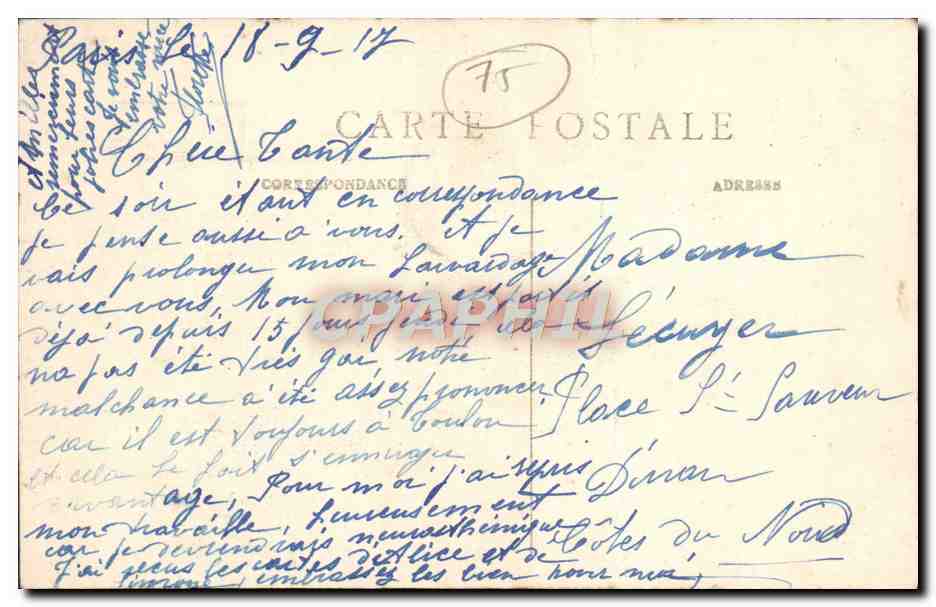 Paris Le 18-9-17
75
CARTE POSTALE
CORRESPONDANCE
ADRESSE
Chere Tante
Ce soir étant en correspondance
je pense aussi à vous. Et je
vais prolonger mon bavardage
avec vous, Mon mari est parti
déjà depuis 15 jours
na pas été très gai notre
malchance à été assez prononcer
car il est toujours à Toulon
et cela le fait s'ennuyer
davantage, Pour moi j'ai repris
mon travaille, heureusement
car je deviendrais neurasthénique
J'ai reçus les cartes d'Alice et de
Simone, embrassez les bien pour moi,
et Mille
remerciement
pour leurs
jolies carte
Je vous
embrasse
votre nièce
Madame
Lécuyer
Place St Sauveur
Dinan
Côtes du Nord
CPAPHIL